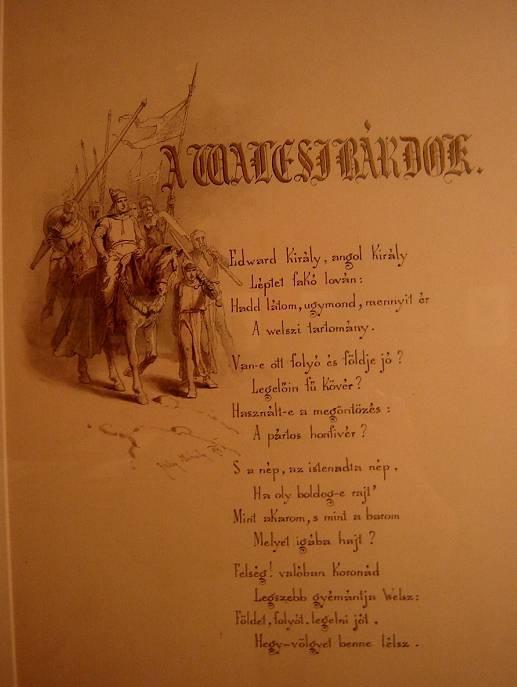 A WALESI BÁRDOK.
Edward Király, angol Király
Léptet fakó lován:
Hadd látom, ugymond, mennyit ér
A welszi tartomány.
Van-e ott folyó és földje jó?
Legelőin fű Kövér?
Használt-e a megöntözés:
A pártos honfivér?
S a nép, az istenadta nép,
Ha oly boldog-e rajt'
Mint aKarom, s mint a barom
Melyet igába hajt?
Felség! valóban Koronád
Legszebb gyémántja Welsz:
Földet, folyót, legelni jót,
Hegy-völgyet benne lélsz.